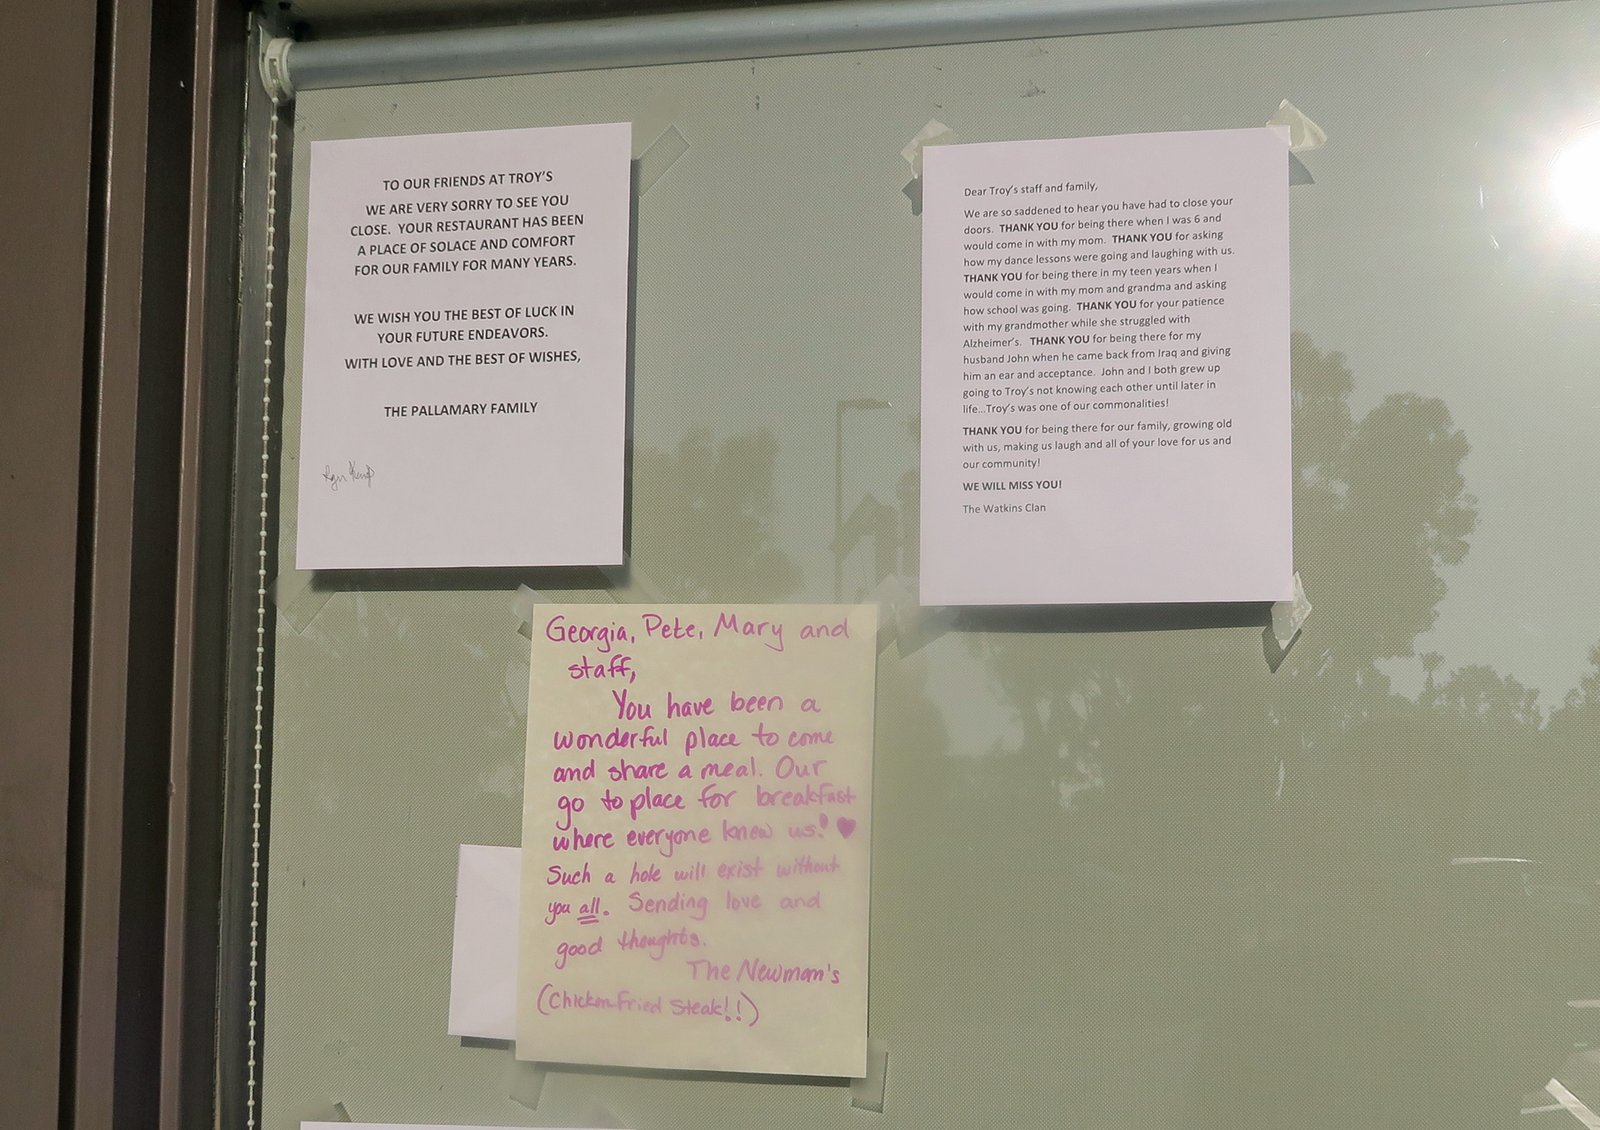 TO OUR FRIENDS AT TROY'S
WE ARE VERY SORRY TO SEE YOU
CLOSE. YOUR RESTAURANT HAS BEEN
A PLACE OF SOLACE AND COMFORT
FOR OUR FAMILY FOR MANY YEARS.
WE WISH YOU THE BEST OF LUCK IN
YOUR FUTURE ENDEAVORS.
WITH LOVE AND THE BEST OF WISHES,
THE PALLAMARY FAMILY
Dear Troy's staff and family,
We are so saddened to hear you have had to close your
doors. THANK YOU for being there when I was 6 and
would come in with my mom. THANK YOU for asking
how my dance lessons were going and laughing with us.
THANK YOU for being there in my teen years when I
would come in with my mom and grandma and asking
how school was going. THANK YOU for your patience
with my grandmother while she struggled with
Alzheimer's. THANK YOU for being there for my
husband John when he came back from Iraq and giving
him an ear and acceptance. John and I both grew up
going to Troy's not knowing each other until later in
life...Troy's was one of our commonalities!
THANK YOU for being there for our family, growing old
with us, making us laugh and all of your love for us and
our community!
WE WILL MISS YOU!
The Watkins Clan
Georgia, Pete, Mary and
staff,
You have been a
wonderful place to come
and share a meal. Our
go to place for breakfast
where everyone knew us! ♥
Such a hole will exist without
you all. Sending love and
good thoughts.
The Newman's
(Chicken Fried Steak!!)